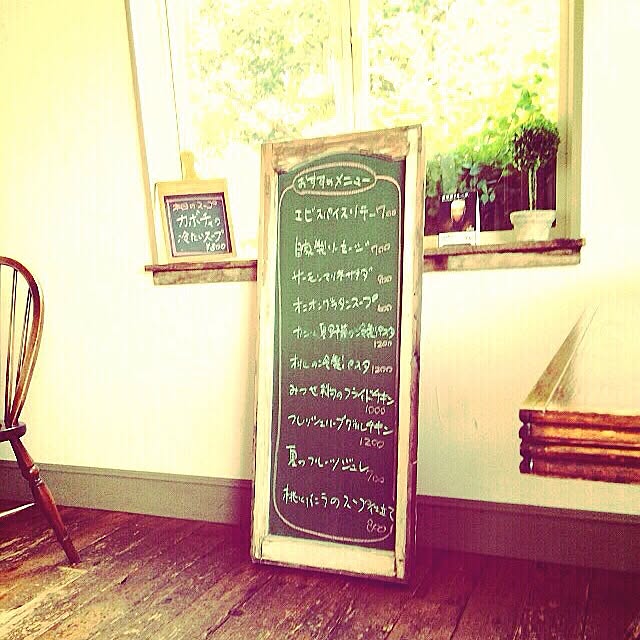 本日のスープ
カボチャの
冷たいスープ
¥300
おすすめメニュー
エビスパイスソテー 700
自家製ソーセージ 700
サーモンマリネサラダ
オニオングラタンスープ 600
夏野菜の冷製パスタ
1200
桃の冷製パスタ 1200
みつせ鶏のフライドチキン
1000
フレッシュハーブグリルチキン
1200
夏のフルーツジュレ
700
桃とバニラのスープ仕立て